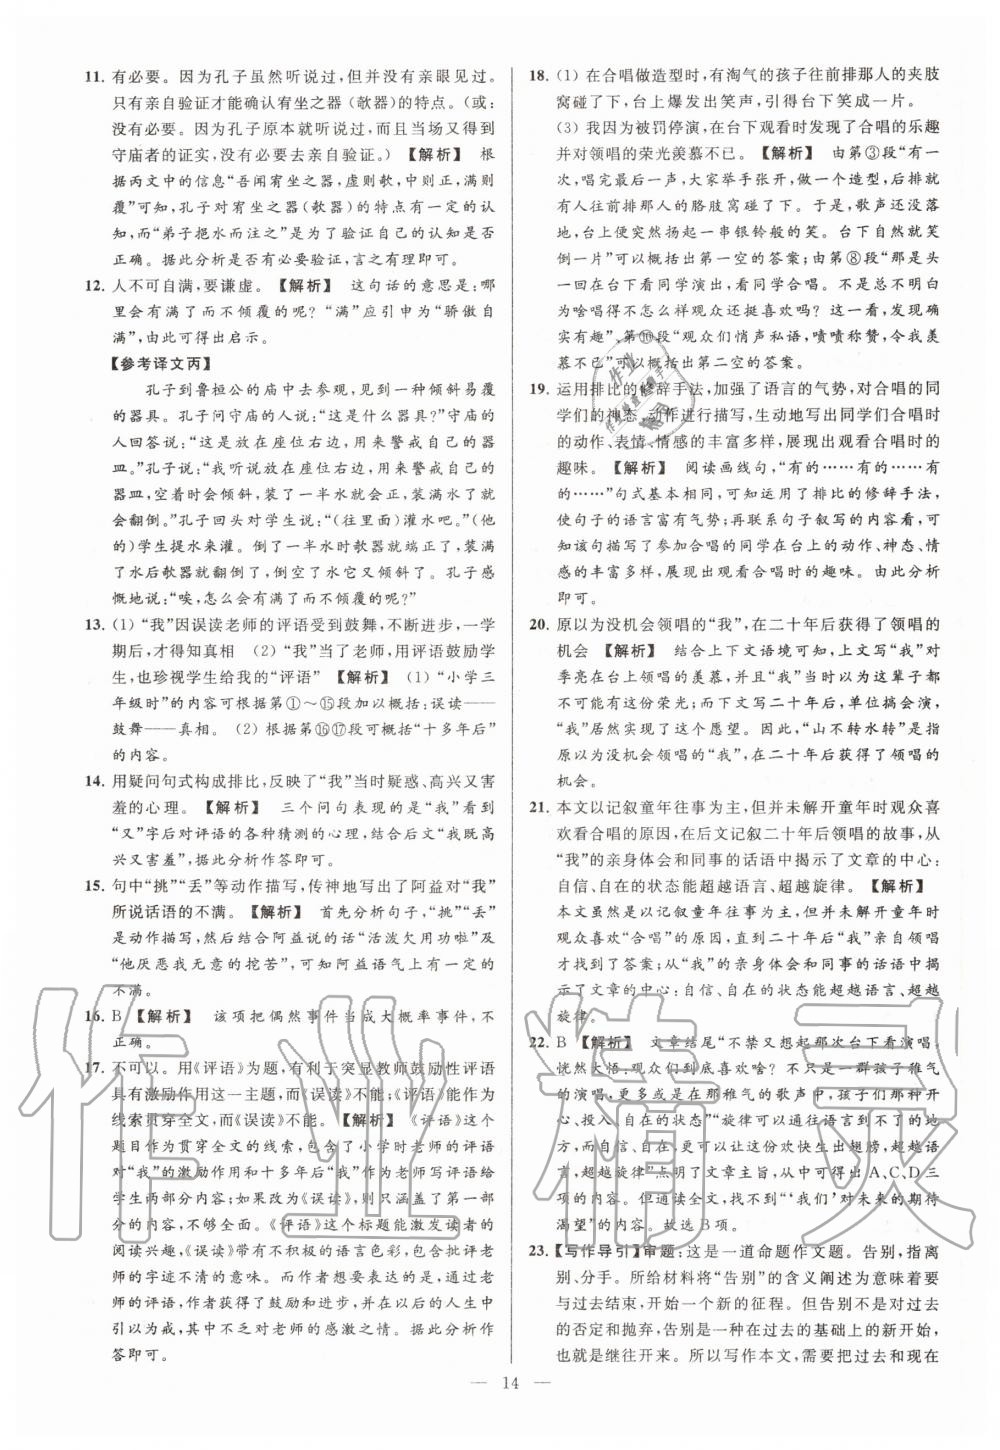 11. 有必要。因为孔子虽然听说过,但并没有亲眼见过。
只有亲自验证才能确认宥坐之器(欹器)的特点。(或:
没有必要。因为孔子原本就听说过,而且当场又得到
守庙者的证实,没有必要去亲自验证。)【解析】 根
据丙文中的信息“吾闻宥坐之器,虚则欹,中则正,满则
覆”可知,孔子对宥坐之器(欹器)的特点有一定的认
知,而“弟子挹水而注之”是为了验证自己的认知是否
正确。据此分析是否有必要验证,言之有理即可。
12. 人不可自满,要谦虚。【解析】 这句话的意思是:哪
里会有满了而不倾覆的呢?“满”应引申为“骄傲自
满”,由此可得出启示。
【参考译文丙】
孔子到鲁桓公的庙中去参观,见到一种倾斜易覆
的器具。孔子问守庙的人说:“这是什么器具?”守庙的
人回答说:“这是放在座位右边,用来警戒自己的器
皿。”孔子说:“我听说放在座位右边,用来警戒自己的
器皿,空着时会倾斜,装了一半水就会正,装满了就
会翻倒。”孔子回头对学生说:“(往里面)灌水吧。”(他
的)学生提水来灌。倒了一半水时欹器就端正了,装满
了水后欹器就翻倒了,倒空了水它又倾斜了。孔子感
慨地说:“唉,怎么会有满了而不倾覆的呢?”
13. (1) “我”因误读老师的评语受到鼓舞,不断进步,一学
期后,才得知真相 (2) “我”当了老师,用评语鼓励学
生,也珍视学生给我的“评语” 【解析】 (1) “小学三
年级时”的内容可根据第①～⑮段加以概括:误读——
鼓舞——真相。 (2) 根据第⑯⑰段可概括“十多年后”
的内容。
14. 用疑问句式构成排比,反映了“我”当时疑惑、高兴又害
羞的心理。【解析】 三个问句表现的是“我”看到
“又”字后对评语的各种猜测的心理,结合后文“我既高
兴又害羞”,据此分析作答即可。
15. 句中“挑”“丢”等动作描写,传神地写出了阿益对“我”
所说话语的不满。【解析】 首先分析句子,“挑”“丢”
是动作描写,然后结合阿益说的话“活泼欠用功啦”及
“他厌恶我无意的挖苦”,可知阿益语气上有一定的
不满。
16. B 【解析】 该项把偶然事件当成大概率事件,不
正确。
17. 不可以。用《评语》为题,有利于突显教师鼓励性评语
具有激励作用这一主题,而《误读》不能;《评语》能作为
线索贯穿全文,而《误读》不能。【解析】 《评语》这个
题目作为贯穿全文的线索,包含了小学时老师的评语
对“我”的激励作用和十多年后“我”作为老师写评语给
学生两部分内容;如果改为《误读》,则只涵盖了第一部
分的内容,不够全面。《评语》这个标题能激发读者的
阅读兴趣,《误读》带有不积极的语言色彩,有批评老
师的字迹不清的意味。而作者并没有批评,正是通过
老师的评语,作者获得了鼓励和进步,并在以后的人生中
引以为戒,其中不乏对老师的感激之情。据此分析作
答即可。
18. (1) 在合唱做造型时,有淘气的孩子往前排那人的夹肢
窝碰了下,台上爆发出笑声,引得台下笑成一片。
(3) 我因为被罚停演,在台下观看时发现了合唱的乐趣
并对领唱的荣光羡慕不已。【解析】 由第③段“有一
次,唱完最后一声,大家举手张开,做一个造型,后排就
有人往前排那人的胳肢窝碰了下。于是,歌声还没落
地,台上便突然扬起一串银铃般的笑。台下自然就笑
倒一片”可以概括出第一空的答案;由第⑧段“那是头
一回在台下看同学演出,看同学合唱。不是总不明白
为啥唱得不怎么样观众还挺喜欢吗?这一看,发现确
实有趣”、第⑩段“观众们悄声私语,啧啧称赞,令我羡
慕不已”可以概括出第二空的答案。
19. 运用排比的修辞手法,加强了语言的气势,对合唱的同
学们的神态、动作进行描写,生动地写出同学们合唱时
的动作、表情、情感的丰富多样,展现出观看合唱时的
趣味。【解析】 阅读画线句,“有的……有的……有
的……”句式基本相同,可知运用了排比的修辞手法,
使句子的语言富有气势;再联系句子叙写的内容看,可
知该句描写了参加合唱的同学在台上的动作、神态、情
感的丰富多样,展现出观看合唱时的趣味。由此分析
即可。
20. 原以为没机会领唱的“我”,在二十年后获得了领唱的
机会 【解析】 结合上下文语境可知,上文写“我”对
季亮在台上领唱的羡慕,并以为这是“我”这辈子都
不可能有的荣光;而下文写二十年后,单位搞会演,
“我”居然实现了这个愿望。因此,“山不转水转”是指
原以为没机会领唱的“我”,在二十年后获得了领唱的
机会。
21. 本文以记叙童年往事为主,但并未解开童年时观众喜
欢看合唱的原因,在后文记叙二十年后领唱的故事,从
“我”的亲身体会和同事的话语中揭示了文章的中心:
自信、自在的状态能超越语言、超越旋律。【解析】
本文虽然是以记叙童年往事为主,但并未解开童年时
观众喜欢“合唱”的原因,直到二十年后“我”亲自领唱
才找到了答案;从“我”的亲身体会和同事的话语中揭
示了文章的中心:自信、自在的状态能超越语言、超越
旋律。
22. B 【解析】 文章结尾“不禁又想起那次台下看演唱,
恍然大悟:观众们到底喜欢啥?不只是一群孩子稚气
的演唱,更多或是在那稚气的歌声中,孩子们那种开
心、投入、自在的状态”“旋律可以通过语言到不了的地
方,而自信、自在,更可以让这份欢快生出翅膀,超越语
言,超越旋律”点明了文章主旨,从中可得出A、C、D三
项的内容。但通读全文,可发现没有提到“‘我们’对未来的期待
渴望”的内容。故选B项。
23. 【写作导引】审题:这是一道命题作文题。告别,指离
别、分手。所给材料将“告别”的含义阐述为意味着要
与过去结束,开始一个新的征程。但告别不是对过去
的否定和抛弃,告别是一种在过去的基础上的新开始,
也就是继往开来。所以写作本文,需要把过去和现在
— 14 —
作业精灵